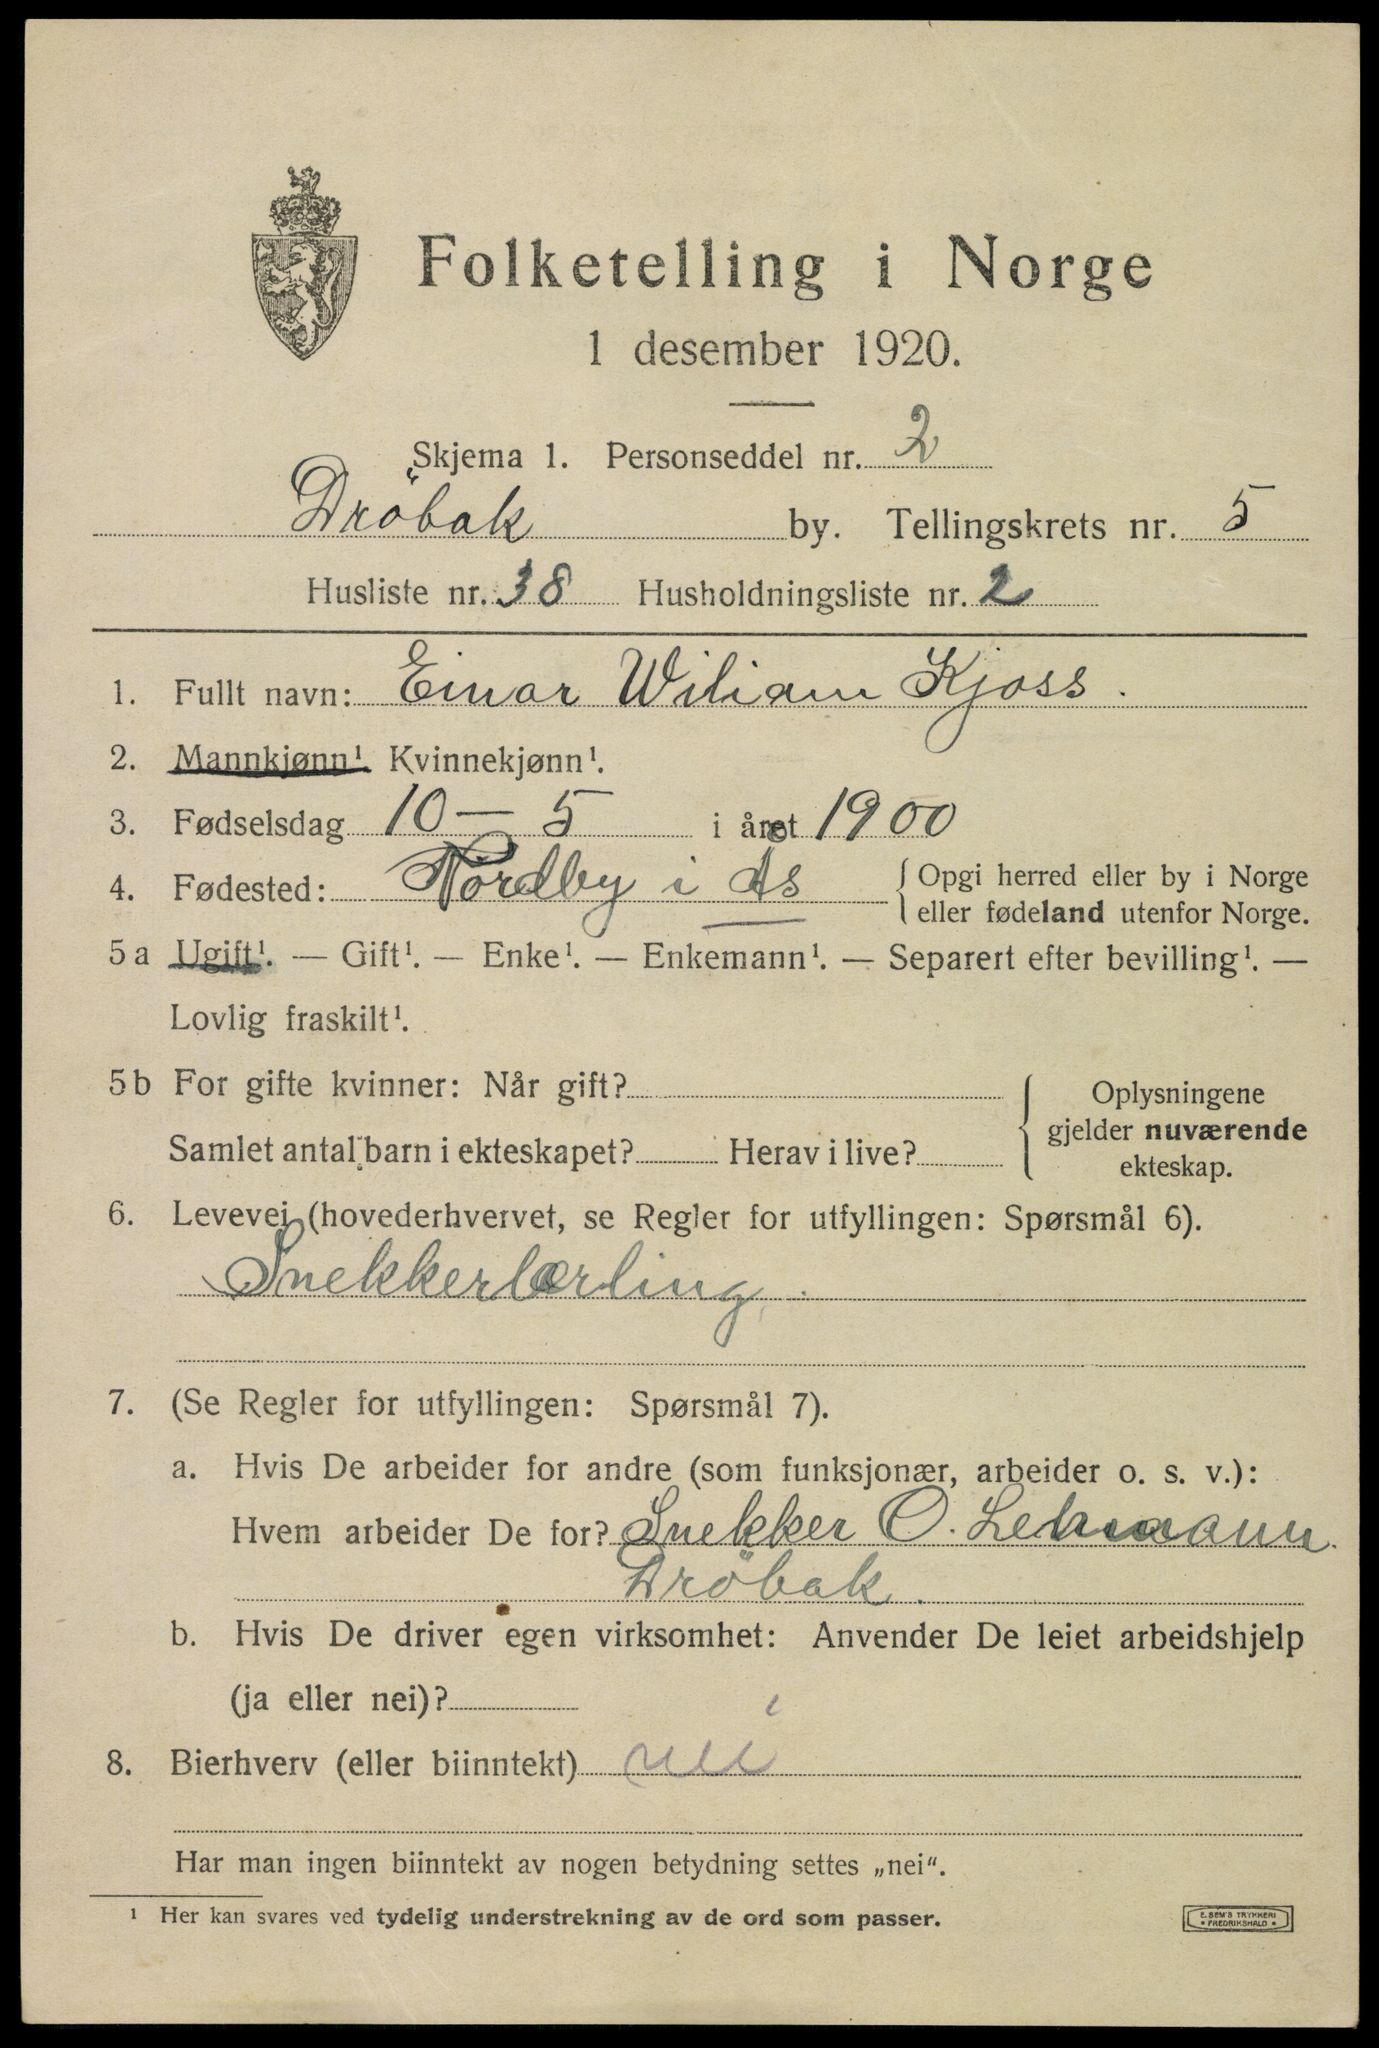 Folketelling i Norge
1 desember 1920.
Skjema 1. Personseddel nr. 2
Dröbak by. Tellingskrets nr. 5
Husliste nr. 38 Husholdningsliste nr. 2
1. Fullt navn: Einar Wiliam Kjoss.
2. Mannkjønn¹. Kvinnekjønn¹.
3. Fødselsdag 10 - 5 i året 1900
4. Fødested: Nordby i Ås { Opgi herred eller by i Norge
eller fødeland utenfor Norge.
5 a Ugift¹. — Gift¹. — Enke¹. — Enkemann¹. — Separert efter bevilling¹. —
Lovlig fraskilt¹.
5 b For gifte kvinner: Når gift?
Samlet antal barn i ekteskapet? Herav i live?
Oplysningene
gjelder nuværende
ekteskap.
6. Levevei (hovederhvervet, se Regler for utfyllingen: Spørsmål 6).
Snekkerlærling.
7. (Se Regler for utfyllingen: Spørsmål 7).
a. Hvis De arbeider for andre (som funksjonær, arbeider o. s. v.):
Hvem arbeider De for? Snekker O. Lehmann.
Dröbak.
b. Hvis De driver egen virksomhet: Anvender De leiet arbeidshjelp
(ja eller nei)?
8. Bierhverv (eller biinntekt) nei
Har man ingen biinntekt av nogen betydning settes „nei“.
¹ Her kan svares ved tydelig understrekning av de ord som passer.
E. SEM'S TRYKKERI
• FREDRIKSHALD •